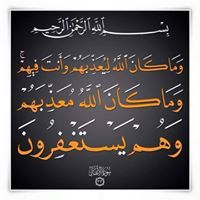 بِسْمِ اللَّهِ الرَّحْمَٰنِ الرَّحِيمِ
وَمَا كَانَ اللَّهُ لِيُعَذِّبَهُمْ وَأَنتَ فِيهِمْ ۚ
وَمَا كَانَ اللَّهُ مُعَذِّبَهُمْ
وَهُمْ يَسْتَغْفِرُونَ
سورة الأنفال
٣٣